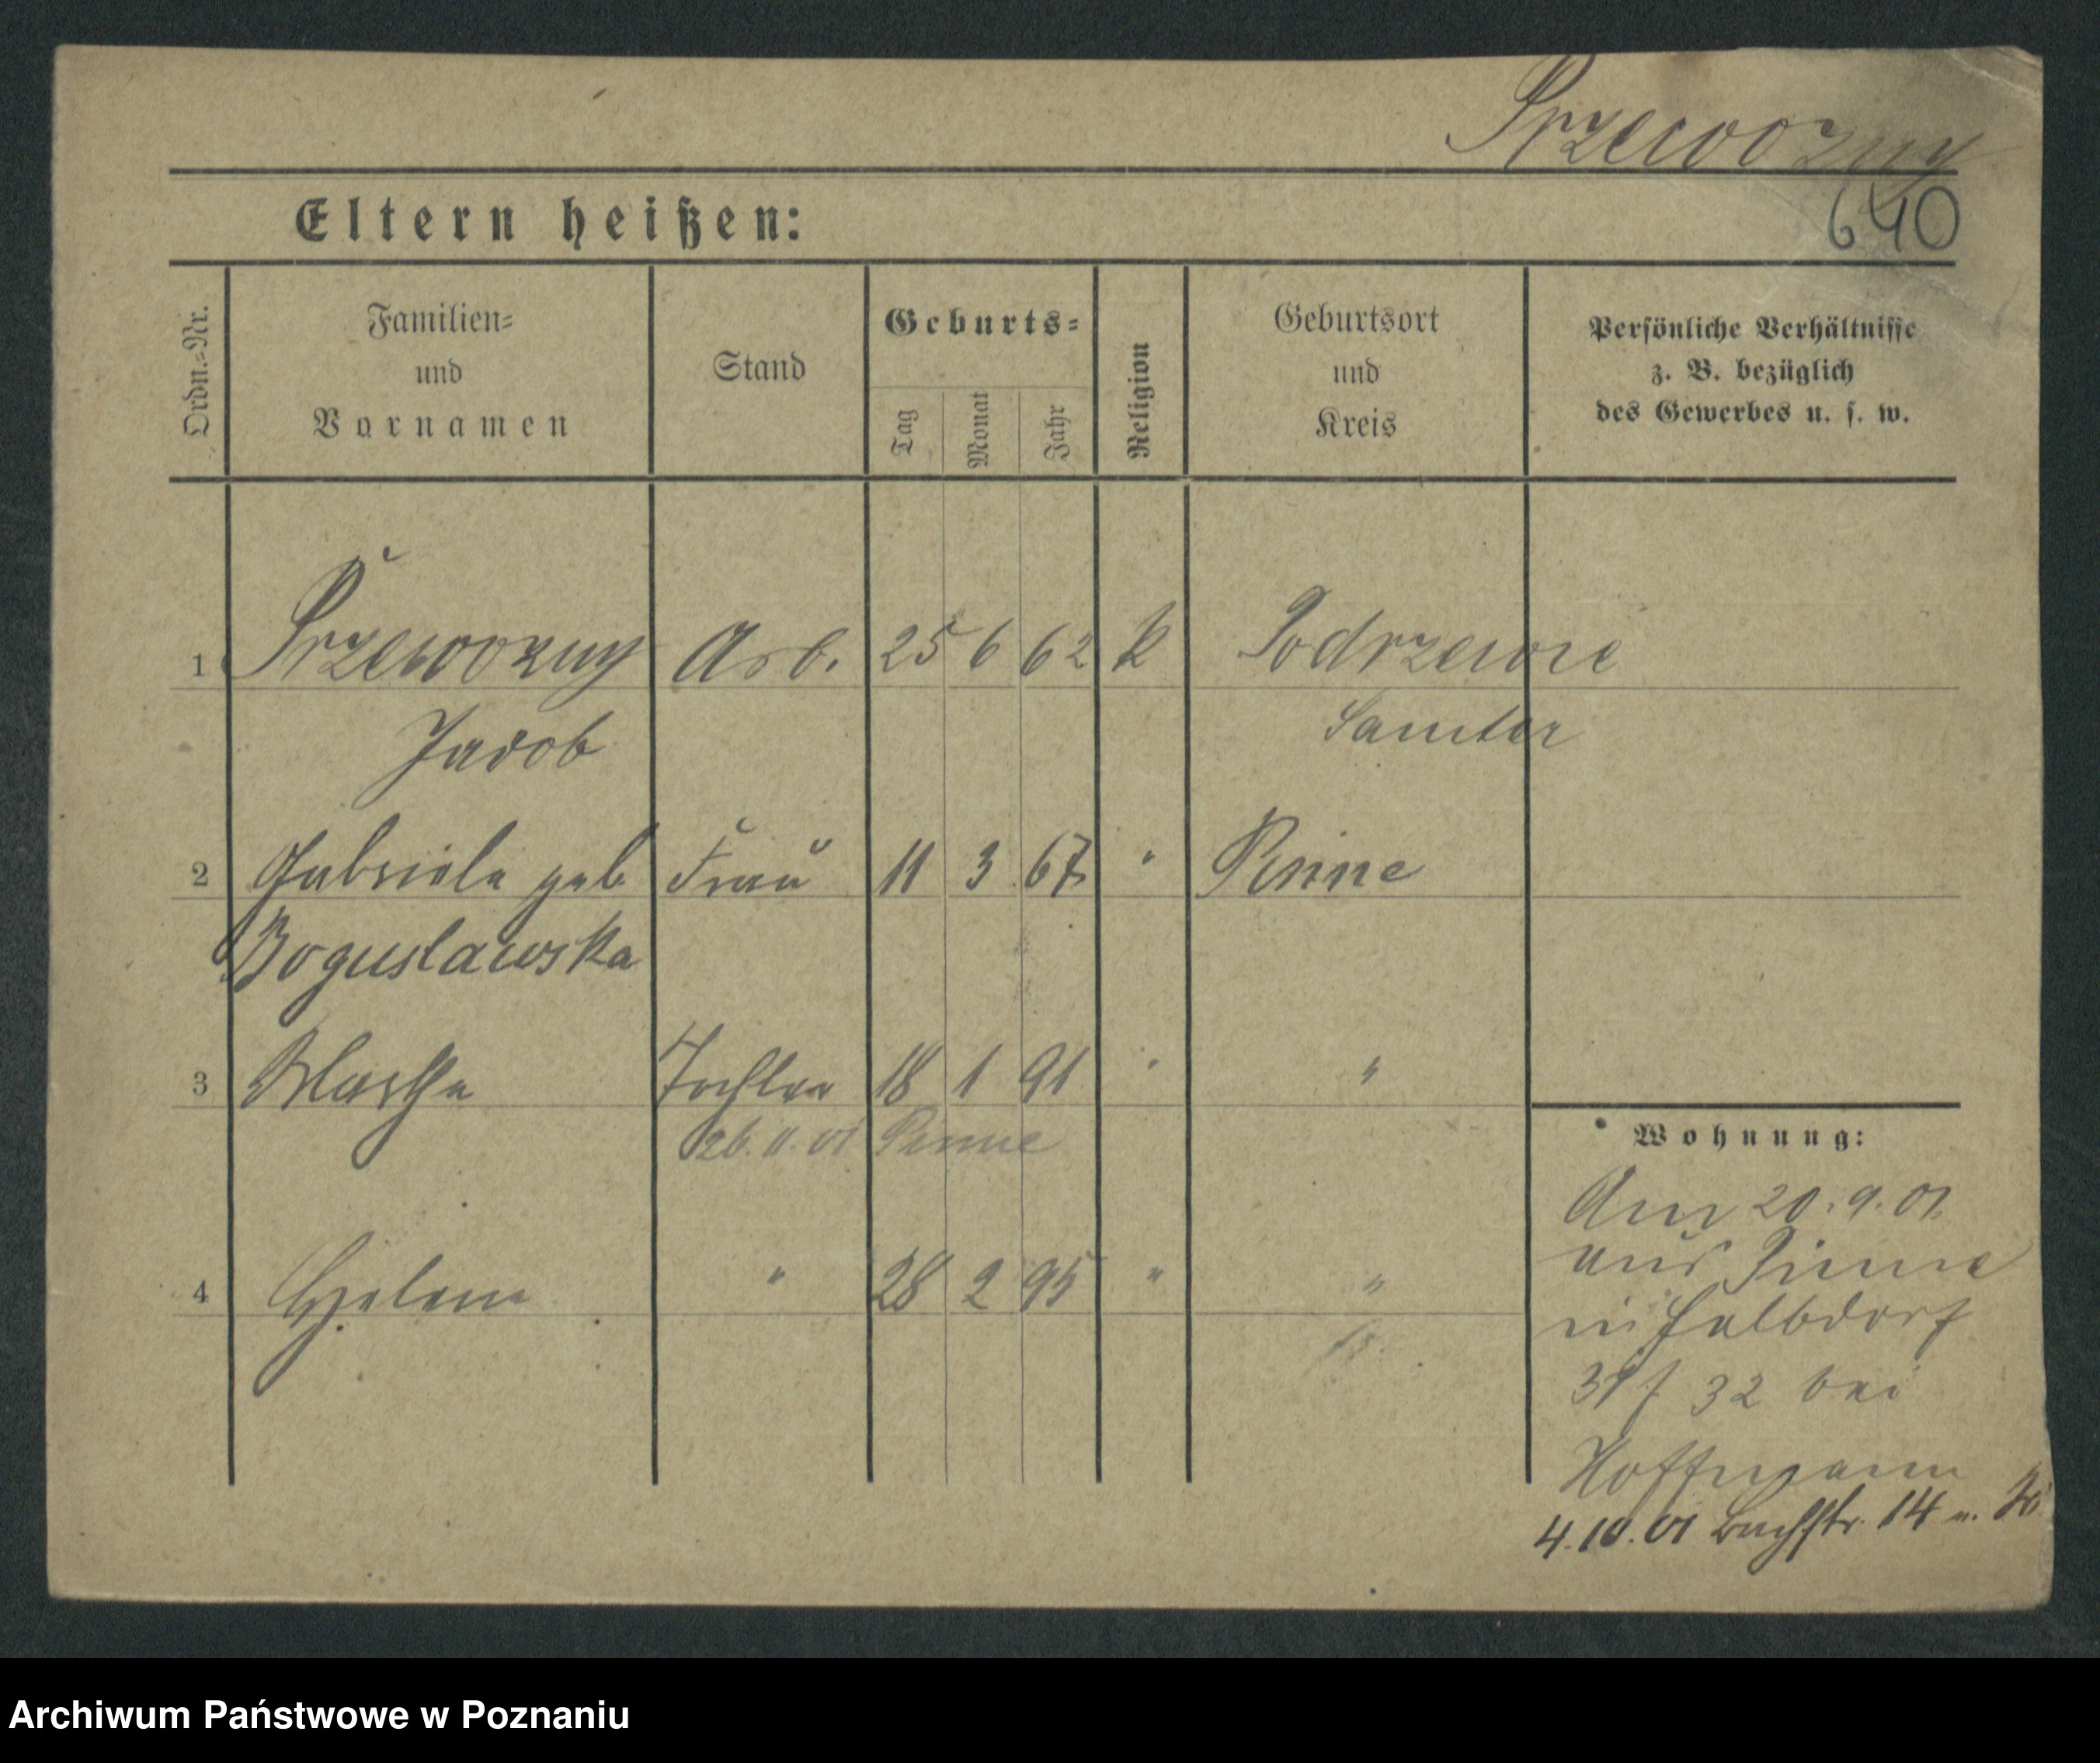 Przewozny
640
Eltern heißen:
Ordn.=Nr.
Familien=
und
Vornamen
Stand
Geburts=
Tag
Monat
Jahr
Religion
Geburtsort
und
Kreis
Persönliche Verhältnisse
z. B. bezüglich
des Gewerbes u. s. w.
1 Przewozny Arb. 25 6 62 k Podrzewie
Jacob Samter
2 Gabriele geb Frau 11 3 67 " Pinne
Boguslawska
3 Martha Tochter 18 1 91 " "
26. 11. 01 Pinne
4 Helene " 28 2 95 " "
Wohnung:
Am 20. 9. 01
aus Pinne
in Halbdorf
32 bei
Hoffmann
4. 10. 01 Bachstr. 14
Archiwum Państwowe w Poznaniu